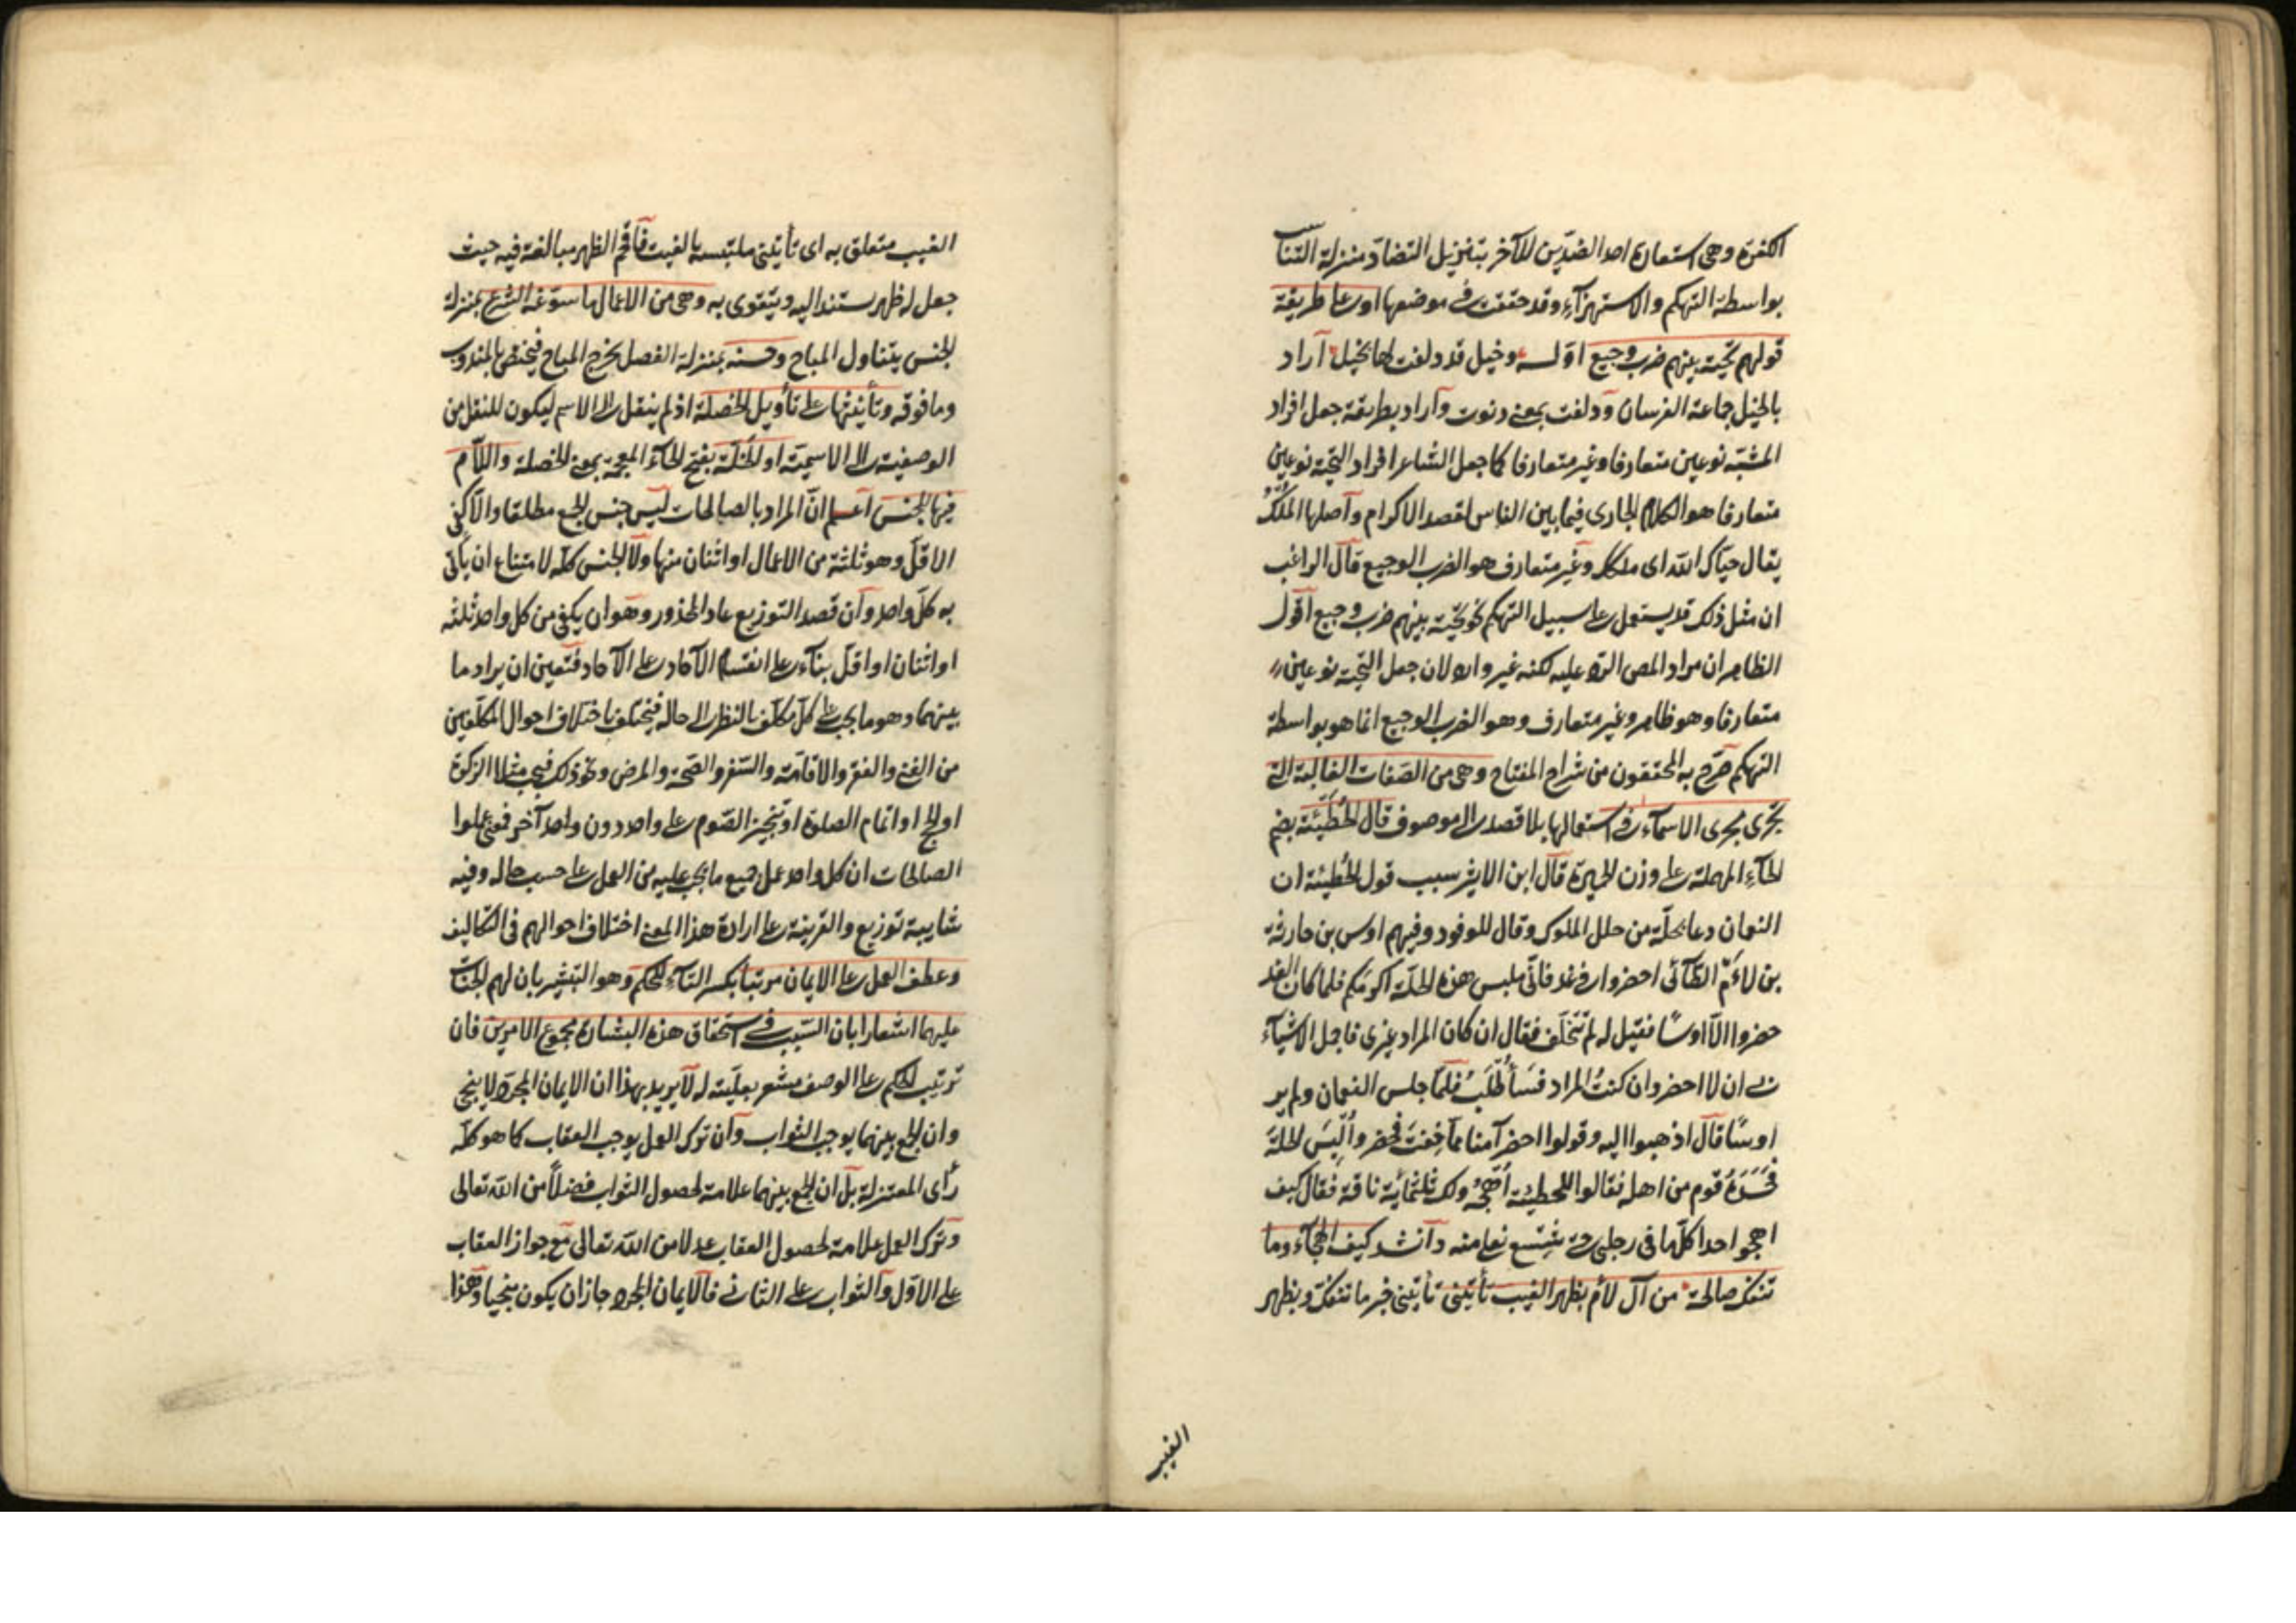 الكفرة وهى استعارة احد الضدّين للآخر بتنزيل التضادّ منزلة التناسب
بواسطة التهكم والاستهزآء وقد حققت فى موضعها او على طريقة
قولهم تحيّة بينهم ضرب وجيع اوّله وخيل قد دلفت لها بخيل آراد
بالخيل جماعة الفرسان ودلفت بمعنى دنوت وآراد بطريقة جعل افراد
المشبّه نوعين متعارفا وغير متعارف كما جعل الشاعر افراد التحيّة نوعين
متعارفا هو الكلام الجارى فيما بين الناس لقصد الاكرام وآصلها المُلْكُ
يقال حيّاك الله اى ملكك وغير متعارف هو الضرب الوجيع قال الراغب
ان مثل ذلك قد يستعمل على سبيل التهكم نحو تحيّة بينهم ضرب وجيع اقول
الظاهر ان مراد المص الردّ عليه لكنه غير وارد لان جعل التحيّة نوعين
متعارفا وهو ظاهر وغير متعارف وهو الضرب الوجيع انما هو بواسطة
التهكم صرّح به المحققون من شراح المفتاح وهى من الصفات الغالبة التى
تجرى مجرى الاسمآء فى استعمالها بلا قصد الى موصوف قال الحُطَيْئَة بضم
الحآء المهملة على وزن الحميرة قال ابن الاثير سبب قول الحُطيئة ان
النعمان دعا بحلّة من حلل الملوك وقال للوفود وفيهم اوس بن حارثة
بن لاءم الطّآئى احضروا فى غد فانّى ملبس هذه الحلّة اكرمَكم فلما كان الغد
حضروا الّا اوسًا فقيل له لم تتخلّف فقال ان كان المراد غيرى فاجمل الاشيآء
بى ان لا احضر وان كنتُ المراد فسَأُطْلَبُ فلمّا جلس النعمان ولم ير
اوسًا قال اذهبوا اليه وقولوا احضر آمنا ممّا خِفتَ فحضر وأُلْبِسَ الحلّة
فحَسَدَهُ قوم من اهله فقالوا للحطيئة أُهْجُهُ ولك ثلثمائة ناقة فقال كيف
اهجو احدا كلّما فى رجلى حتى شِسْع نعلى منه وآنشد كيف الهجآء وما
تنفكّ صالحة من آل لأم بظهر الغيب تأتينى تأتينى خبر ما تنفكّ وبظهر
الغيب
الغيب متعلق به اى تأتينى ملتبسة بالغيب فاقحم الظهر مبالغة فيه حيث
جعل له ظهر يستند اليه ويتقوى به وهى من الاعمال ما سوّغه الشرع بمنزلة
الجنس يتناول المباح وحسنه بمنزلة الفصل يخرج المباح فيختص بالمندوب
وما فوقه وتأنيثها على تأويل الخصلة اذ لم ينقل الى الاسم ليكون للنقل من
الوصفية الى الاسميّة او الخَلّة بفتح الخآء المعجمة بمعنى الخصلة واللّام
فيها للجنس اعلم انّ المراد بالصالحات ليس جنس الجمع مطلقا والا كفى
الاقلّ وهو ثلثة من الاعمال او اثنان منها ولا الجنس كلّه لامتناع ان يأتى
به كلّ واحد وآن قصد التوزيع عاد المحذور وهو ان يكفى من كل واحد ثلثة
او اثنان او اقلّ بنآء على انقسام الآحاد على الآحاد فتعين ان يراد ما
بينهما وهو ما يجب على كلّ مكلّف بالنظر الى حاله فيختلف باختلاف احوال المكلّفين
من الغنى والفقر والاقامة والسّفر والصّحة والمرض ونحو ذلك فيجب مثلا الزكوة
او الحج او اتمام الصلوة او تنجيز الصّوم على واحد دون واحد آخر فمعنى عملوا
الصالحات ان كل واحد عمل جميع ما يجب عليه من العمل على حسب حاله وفيه
شايبة توزيع والقرينة على ارادة هذا المعنى اختلاف احوالهم فى التكاليف
وعطف العمل على الايمان مرتبا بكسر التآء للحكم وهو التبشير بان لهم الجنّات
عليهما اشعارا بان السّبب فى استحقاق هذه البشارة مجموع الامرين فان
ترتيب الحكم على الوصف مشعر بعليّته له لآ يريد بهذا ان الايمان المجرّد لا ينجى
وان الجمع بينهما يوجب الثواب وآن ترك العمل يوجب العقاب كما هو كلّه
رأى المعتزلة بل ان الجمع بينهما علامة لحصول الثواب فضلًا من الله تعالى
وترك العمل علامة لحصول العقاب عدلا من الله تعالى مع جواز العقاب
على الاوّل والثواب على الثانى فالايمان المجرد جاز ان يكون منجيا وهذا